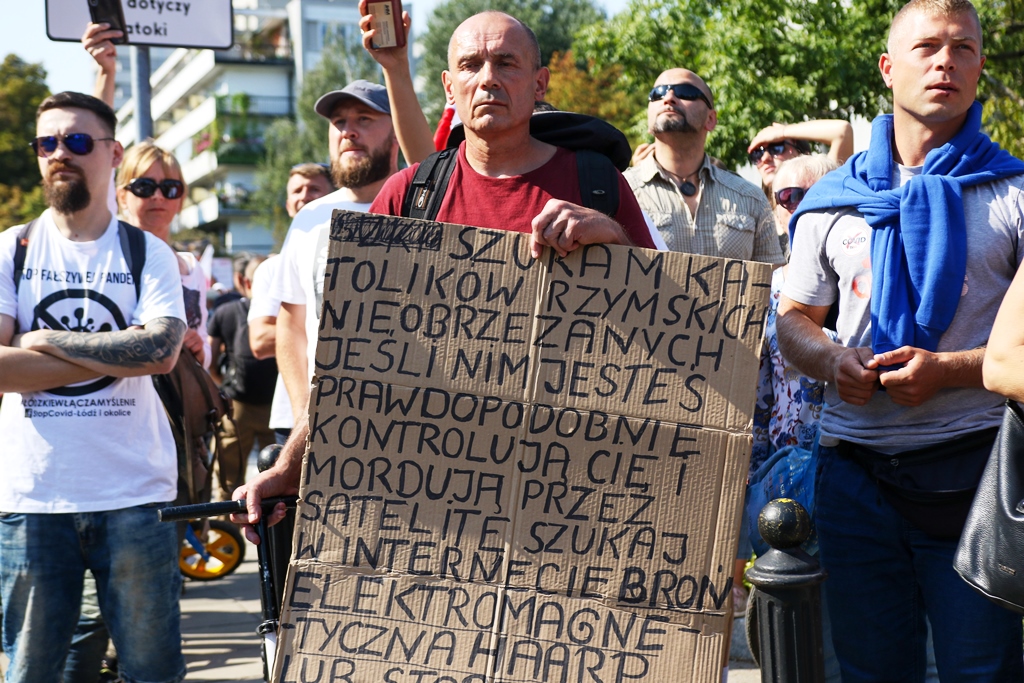 dotyczy
atoki
SZUKAM KA-
TOLIKÓW RZYMSKICH
NIEOBRZEZANYCH
JEŚLI NIM JESTEŚ
PRAWDOPODOBNIE
KONTROLUJĄ CIĘ I
MORDUJĄ PRZEZ
SATELITĘ SZUKAJ
W INTERNECIE BROŃ
ELEKTROMAGNE-
TYCZNA HAARP
LUB STOP
STOP FAŁSZYWEJ PANDEMII
ŁÓDZKIEWŁĄCZAMYŚLENIE
StopCovid-Łódź i okolice